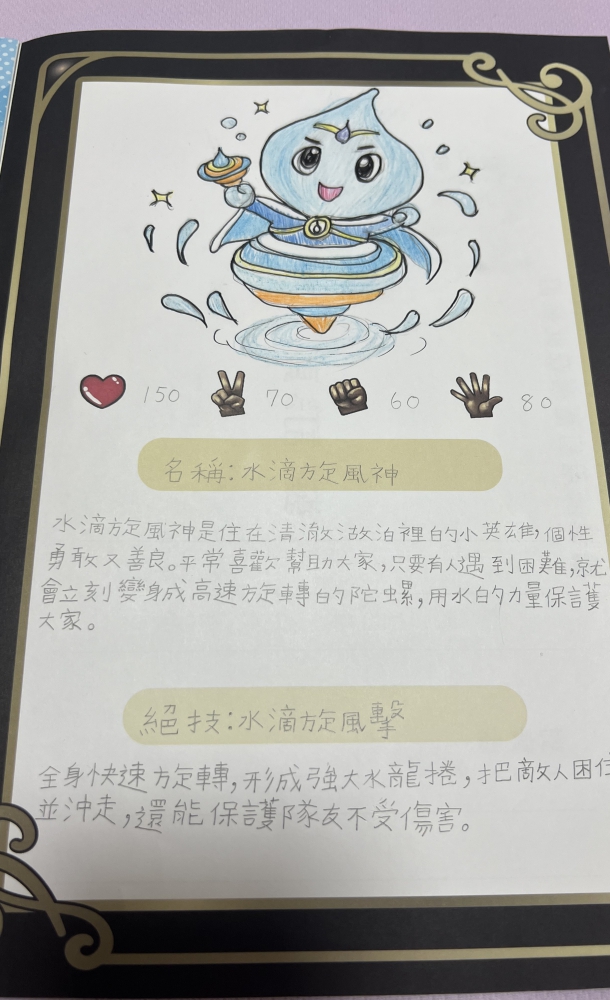 150 70 60 80
名稱:水滴旋風神
水滴旋風神是住在清澈湖泊裡的小英雄,個性
勇敢又善良。平常喜歡幫助大家,只要有人遇到困難,就
會立刻變身成高速旋轉的陀螺,用水的力量保護
大家。
絕技:水滴旋風擊
全身快速旋轉,形成強大水龍捲,把敵人困住
並沖走,還能保護隊友不受傷害。